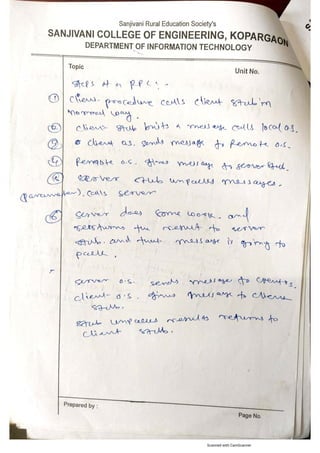 Sanjivani Rural Education Society's
SANJIVANI COLLEGE OF ENGINEERING, KOPARGAON
DEPARTMENT OF INFORMATION TECHNOLOGY
Topic
Unit No.
Steps of a RPC : -
① Client procedure calls client stub in
normal way.
② client stub builds a message calls local O.S.
③ client O.S. sends message to Remote O.S.
④ Remote O.S. gives message to server stub.
⑤ Server stub unpacks messages.
(parameter), calls server
⑥ Server does some work, and
returns the result to server
stub. and that message is going to
pack.
Server O.S. sends message to client O.S.
client O.S. gives message to client
stub.
stub unpacks results returns to
client stub.
Prepared by :
Page No.
Scanned with CamScanner